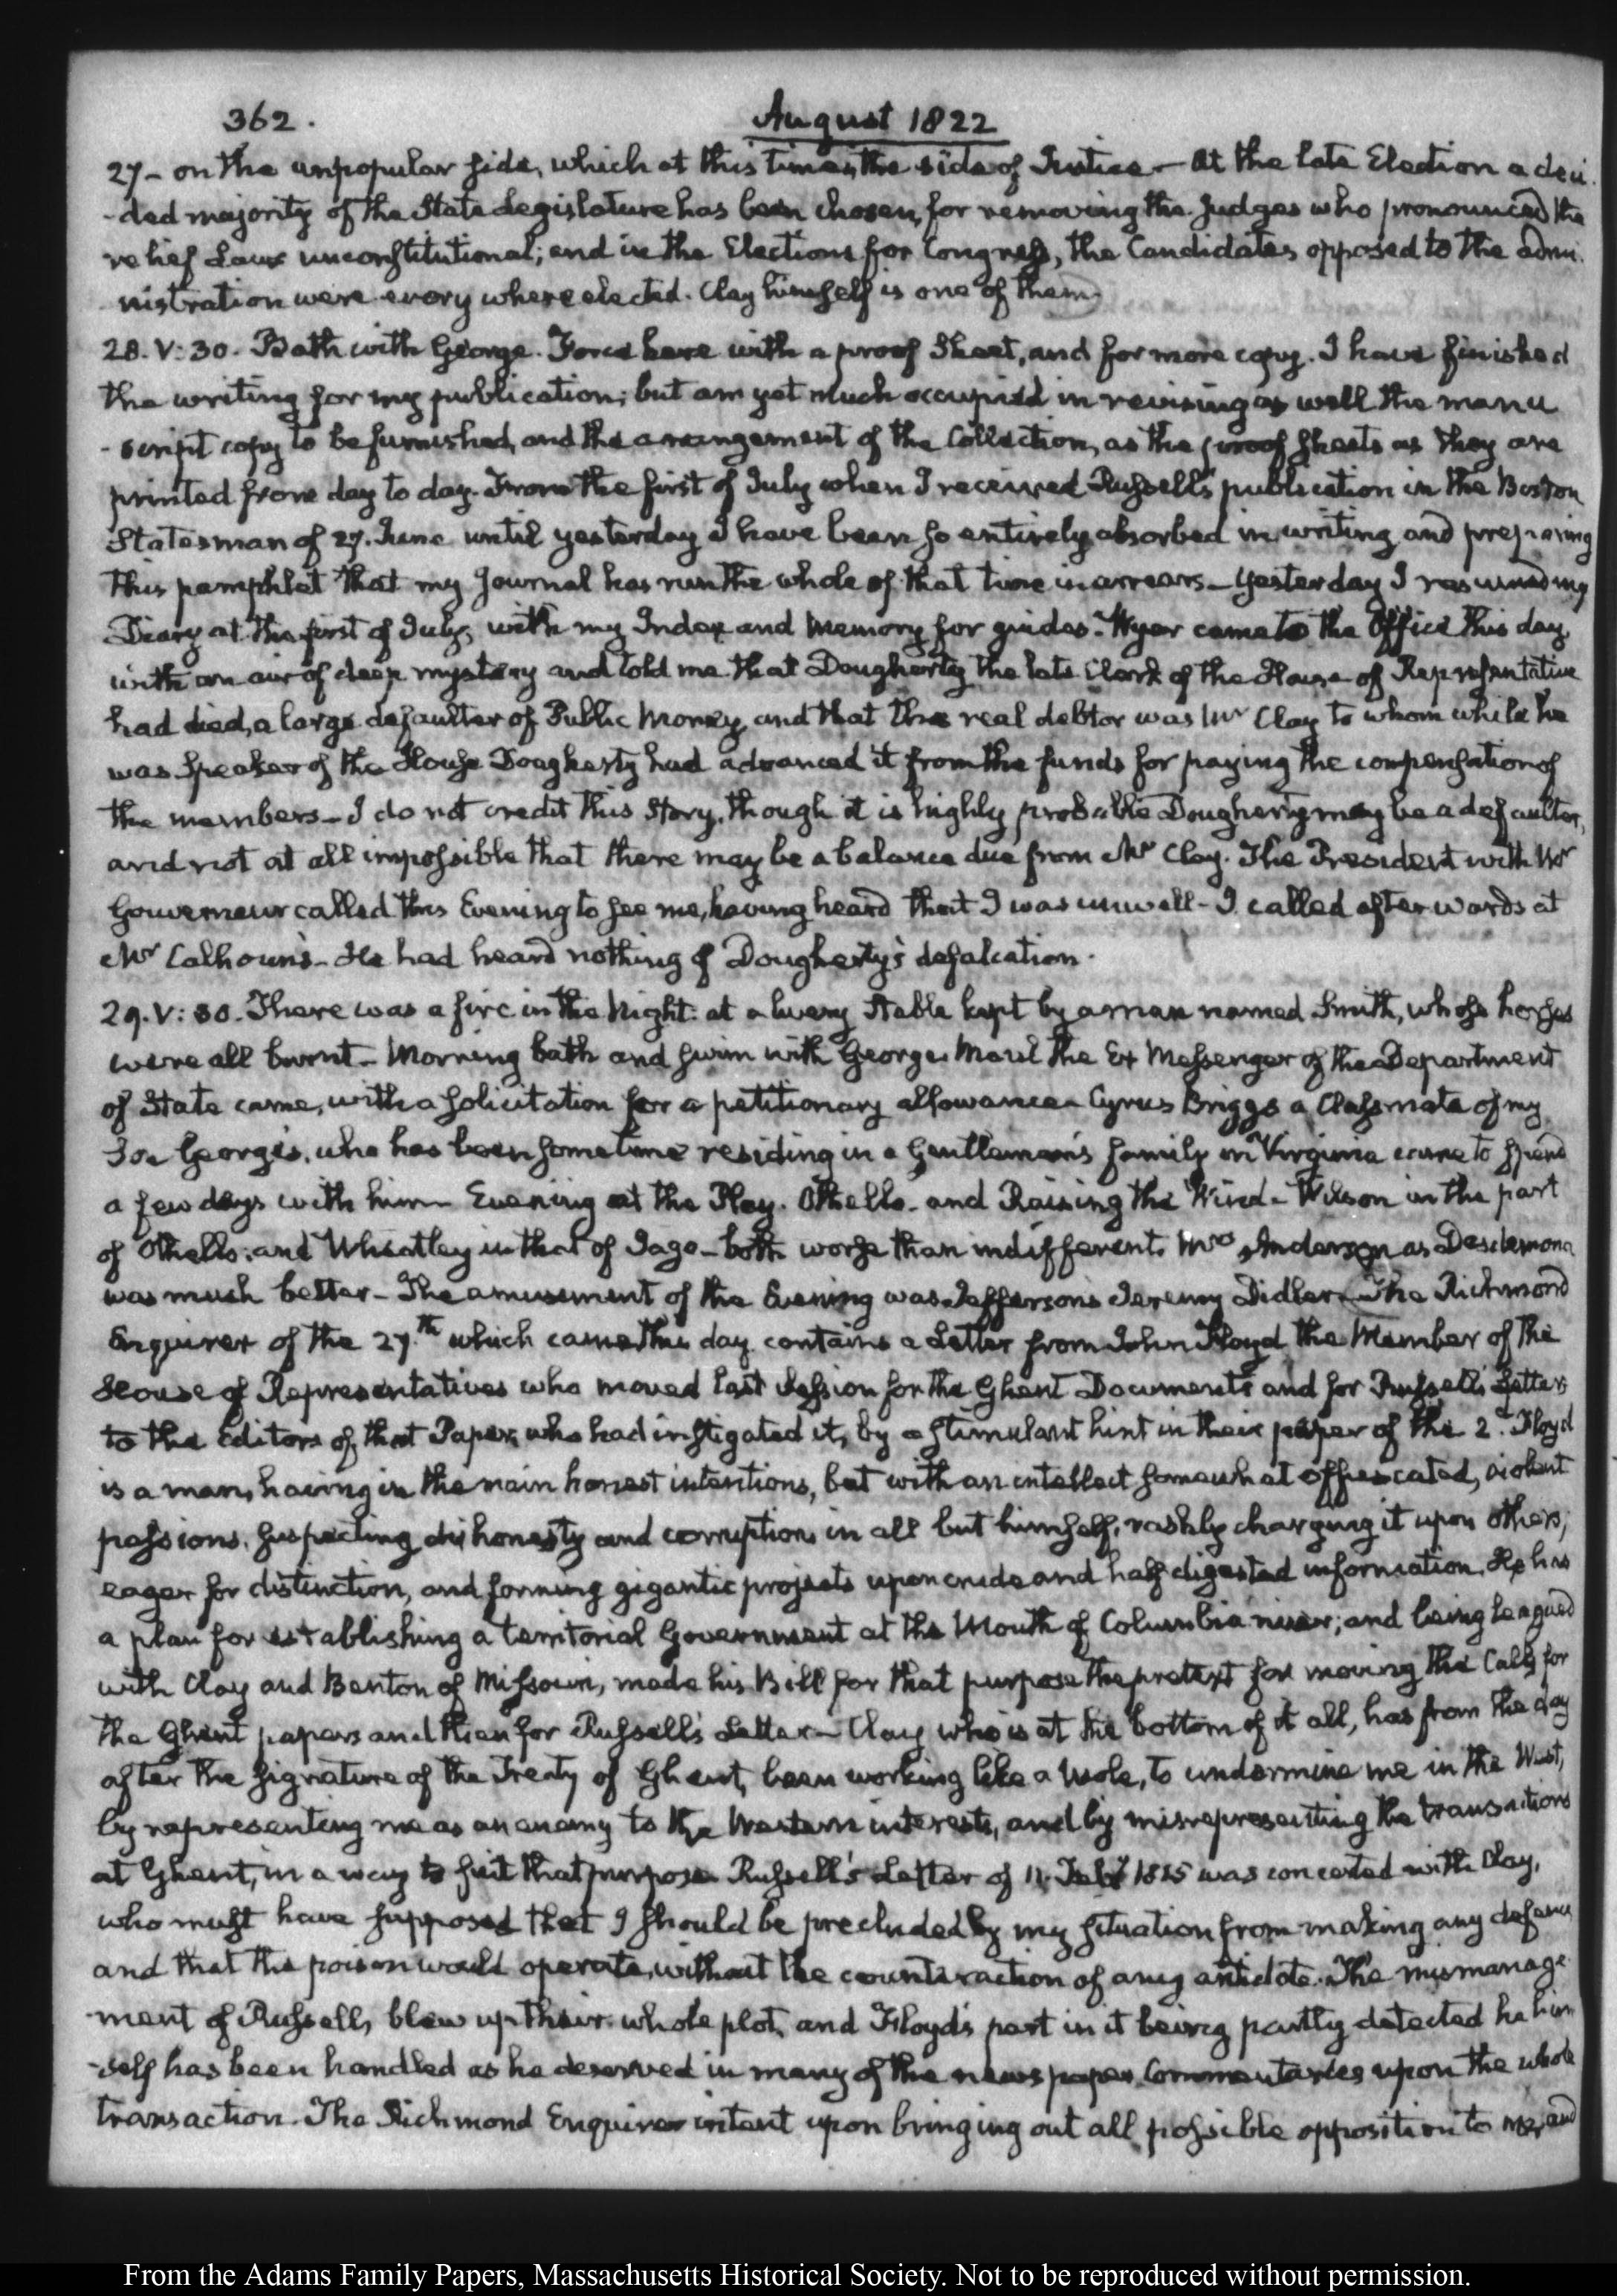 362.
August 1822
27 – on the unpopular side, which at this time is the side of Justice – At the late Election a deci
-ded majority of the State Legislature has been chosen, for removing the Judges who pronounced the
relief Laws unconstitutional; and in the Elections for Congress, the Candidates opposed to the admi
nistration were every where elected. Clay himself is one of them.
28. V: 30. Bath with George. Force here with a proof Sheet, and for more copy. I have finished
the writing for my publication; but am yet much occupied in revising as well the manu
-script copy to be furnished, and the arrangement of the Collection, as the proof sheets as they are
printed from day to day. From the first of July when I received Russell's publication in the Boston
Statesman of 27. June until yesterday I have been so entirely absorbed in writing and preparing
this pamphlet that my Journal has run the whole of that time in arrears – Yesterday I resumed my
Diary at the first of July, with my Index and Memory for guides. Wyer came to the Office this day,
with an air of deep mystery and told me that Dougherty the late Clerk of the House of Representative
had died, a large defaulter of Public Money, and that the real debtor was Mr Clay to whom while he
was Speaker of the House Dougherty had advanced it from the funds for paying the compensation of
the members – I do not credit this Story, though it is highly probable Dougherty may be a defaulter,
and not at all impossible that there may be a balance due from Mr Clay. The President with Mr
Gouverneur called this Evening to see me, having heard that I was unwell – I called afterwards at
Mr Calhoun's – He had heard nothing of Dougherty's defalcation.
29. V: 30. There was a fire in the Night at a livery Stable kept by a man named Smith, whose horses
were all burnt – Morning bath and swim with George. Maul the Ex Messenger of the Department
of State came, with a solicitation for a petitionary allowance – Cyrus Briggs a Classmate of my
Son George's, who has been sometime residing in a Gentleman's family in Virginia came to spend
a few days with him – Evening at the Play. Othello – and Raising the Wind – Wilson in the part
of Othello; and Wheatley in that of Iago – both worse than indifferent. Mrs Anderson as Desdemona
was much better – The amusement of the Evening was Jefferson's Jeremy Didler – The Richmond
Enquirer of the 27.th which came this day contains a Letter from John Floyd the Member of the
House of Representatives who moved last Session for the Ghent Documents and for Russell's Letter,
to the Editors of that Paper, who had instigated it, by a stimulant hint in their paper of the 2.d Floyd
is a man, having in the main honest intentions, but with an intellect somewhat offuscated, violent
passions, suspecting dishonesty and corruption in all but himself, rashly charging it upon others;
eager for distinction, and forming gigantic projects upon crude and half digested information. He has
a plan for establishing a territorial Government at the Mouth of Columbia river; and being leagued
with Clay and Benton of Missouri, made his Bill for that purpose the pretext for moving the Calls for
the Ghent papers and then for Russell's Letter – Clay who is at the bottom of it all, has from the day
after the signature of the Treaty of Ghent, been working like a Mole, to undermine me in the West,
by representing me as an enemy to the Western interests, and by misrepresenting the transactions
at Ghent, in a way to suit that purpose. Russell's Letter of 11. Feby 1815 was concerted with Clay,
who must have supposed that I should be precluded by my situation from making any defence
and that the poison would operate, without the counteraction of any antidote. The mismanage
-ment of Russell, blew up their whole plot, and Floyd's part in it being partly detected he him
-self has been handled as he deserved in many of the newspaper Commentaries upon the whole
transaction. The Richmond Enquirer intent upon bringing out all possible opposition to me, and
From the Adams Family Papers, Massachusetts Historical Society. Not to be reproduced without permission.